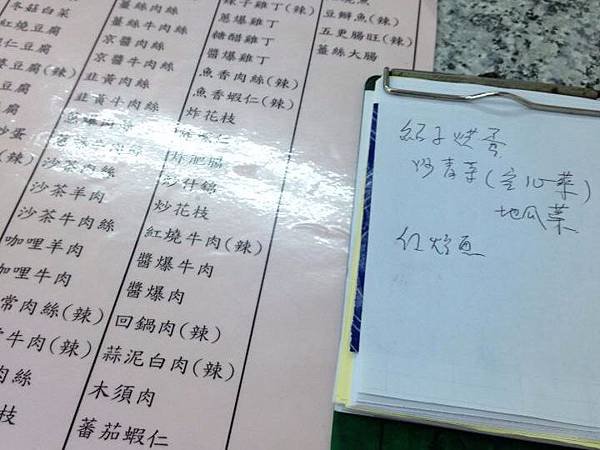 冬菇白菜
紅燒豆腐
蝦仁豆腐
豆腐(辣)
豆腐
炒蛋
(辣)
薑絲肉絲
薑絲牛肉絲
京醬肉絲
京醬牛肉絲
韭黃肉絲
韭黃牛肉絲
沙茶肉絲
沙茶羊肉
沙茶牛肉絲
咖哩羊肉
咖哩牛肉
常肉絲(辣)
牛肉(辣)
肉絲
枝
辣子雞丁(辣)
蔥爆雞丁
糖醋雞丁
醬爆雞丁
魚香肉絲(辣)
魚香蝦仁(辣)
炸花枝
炸肥腸
炒什錦
炒花枝
紅燒牛肉(辣)
醬爆牛肉
醬爆肉
回鍋肉(辣)
蒜泥白肉(辣)
木須肉
蕃茄蝦仁
豆瓣魚(辣)
五更腸旺(辣)
薑絲大腸
紹子烘蛋
炒青菜(空心菜)
地瓜菜